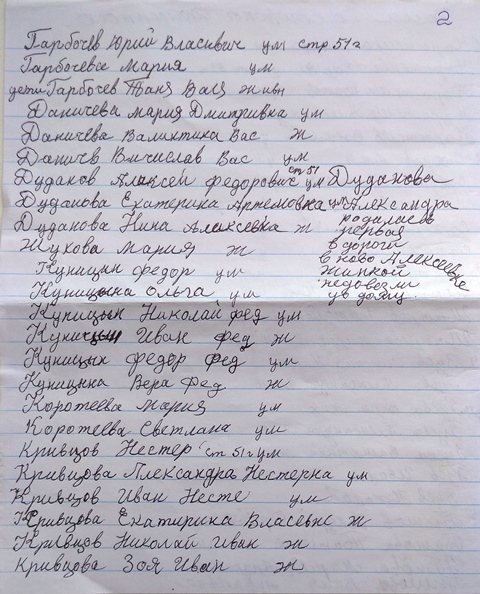 2
Гарбочев Юрий Власивич ум стр 51г
Гарбочева Мария ум
дети Гарбочев Таня Вася живи
Даничева Мария Дмитривка ум
Даничева Валиктика Вас ж
Даничев Вичислав Вас ум
Дудаков Алексей федорович ст 51 ум Дуданова
Дуданова Екатерика Артемовна ум Александра
Дуданова Нина Алексевка ж родилась
Жукова Мария ж первая
в дороги
Куницин федор ум в ново Алексеевке
жипкой
Куницына Ольга ум недовезли
ув доящ.
Куницын Николай фед ум
Куницын Иван фед ж
Куницын федор фед ум
Куницына Вера Фед ж
Коротеева Мария ум
Коротеева Светлана ум
Кривцов Нестер ст 51г ум
Кривцова Александра Нестерна ум
Кривцов Иван Несте ум
Кривцова Екатирика Власевнс ж
Кривцов Николай Иван ж
Кривцова Зоя Иван ж